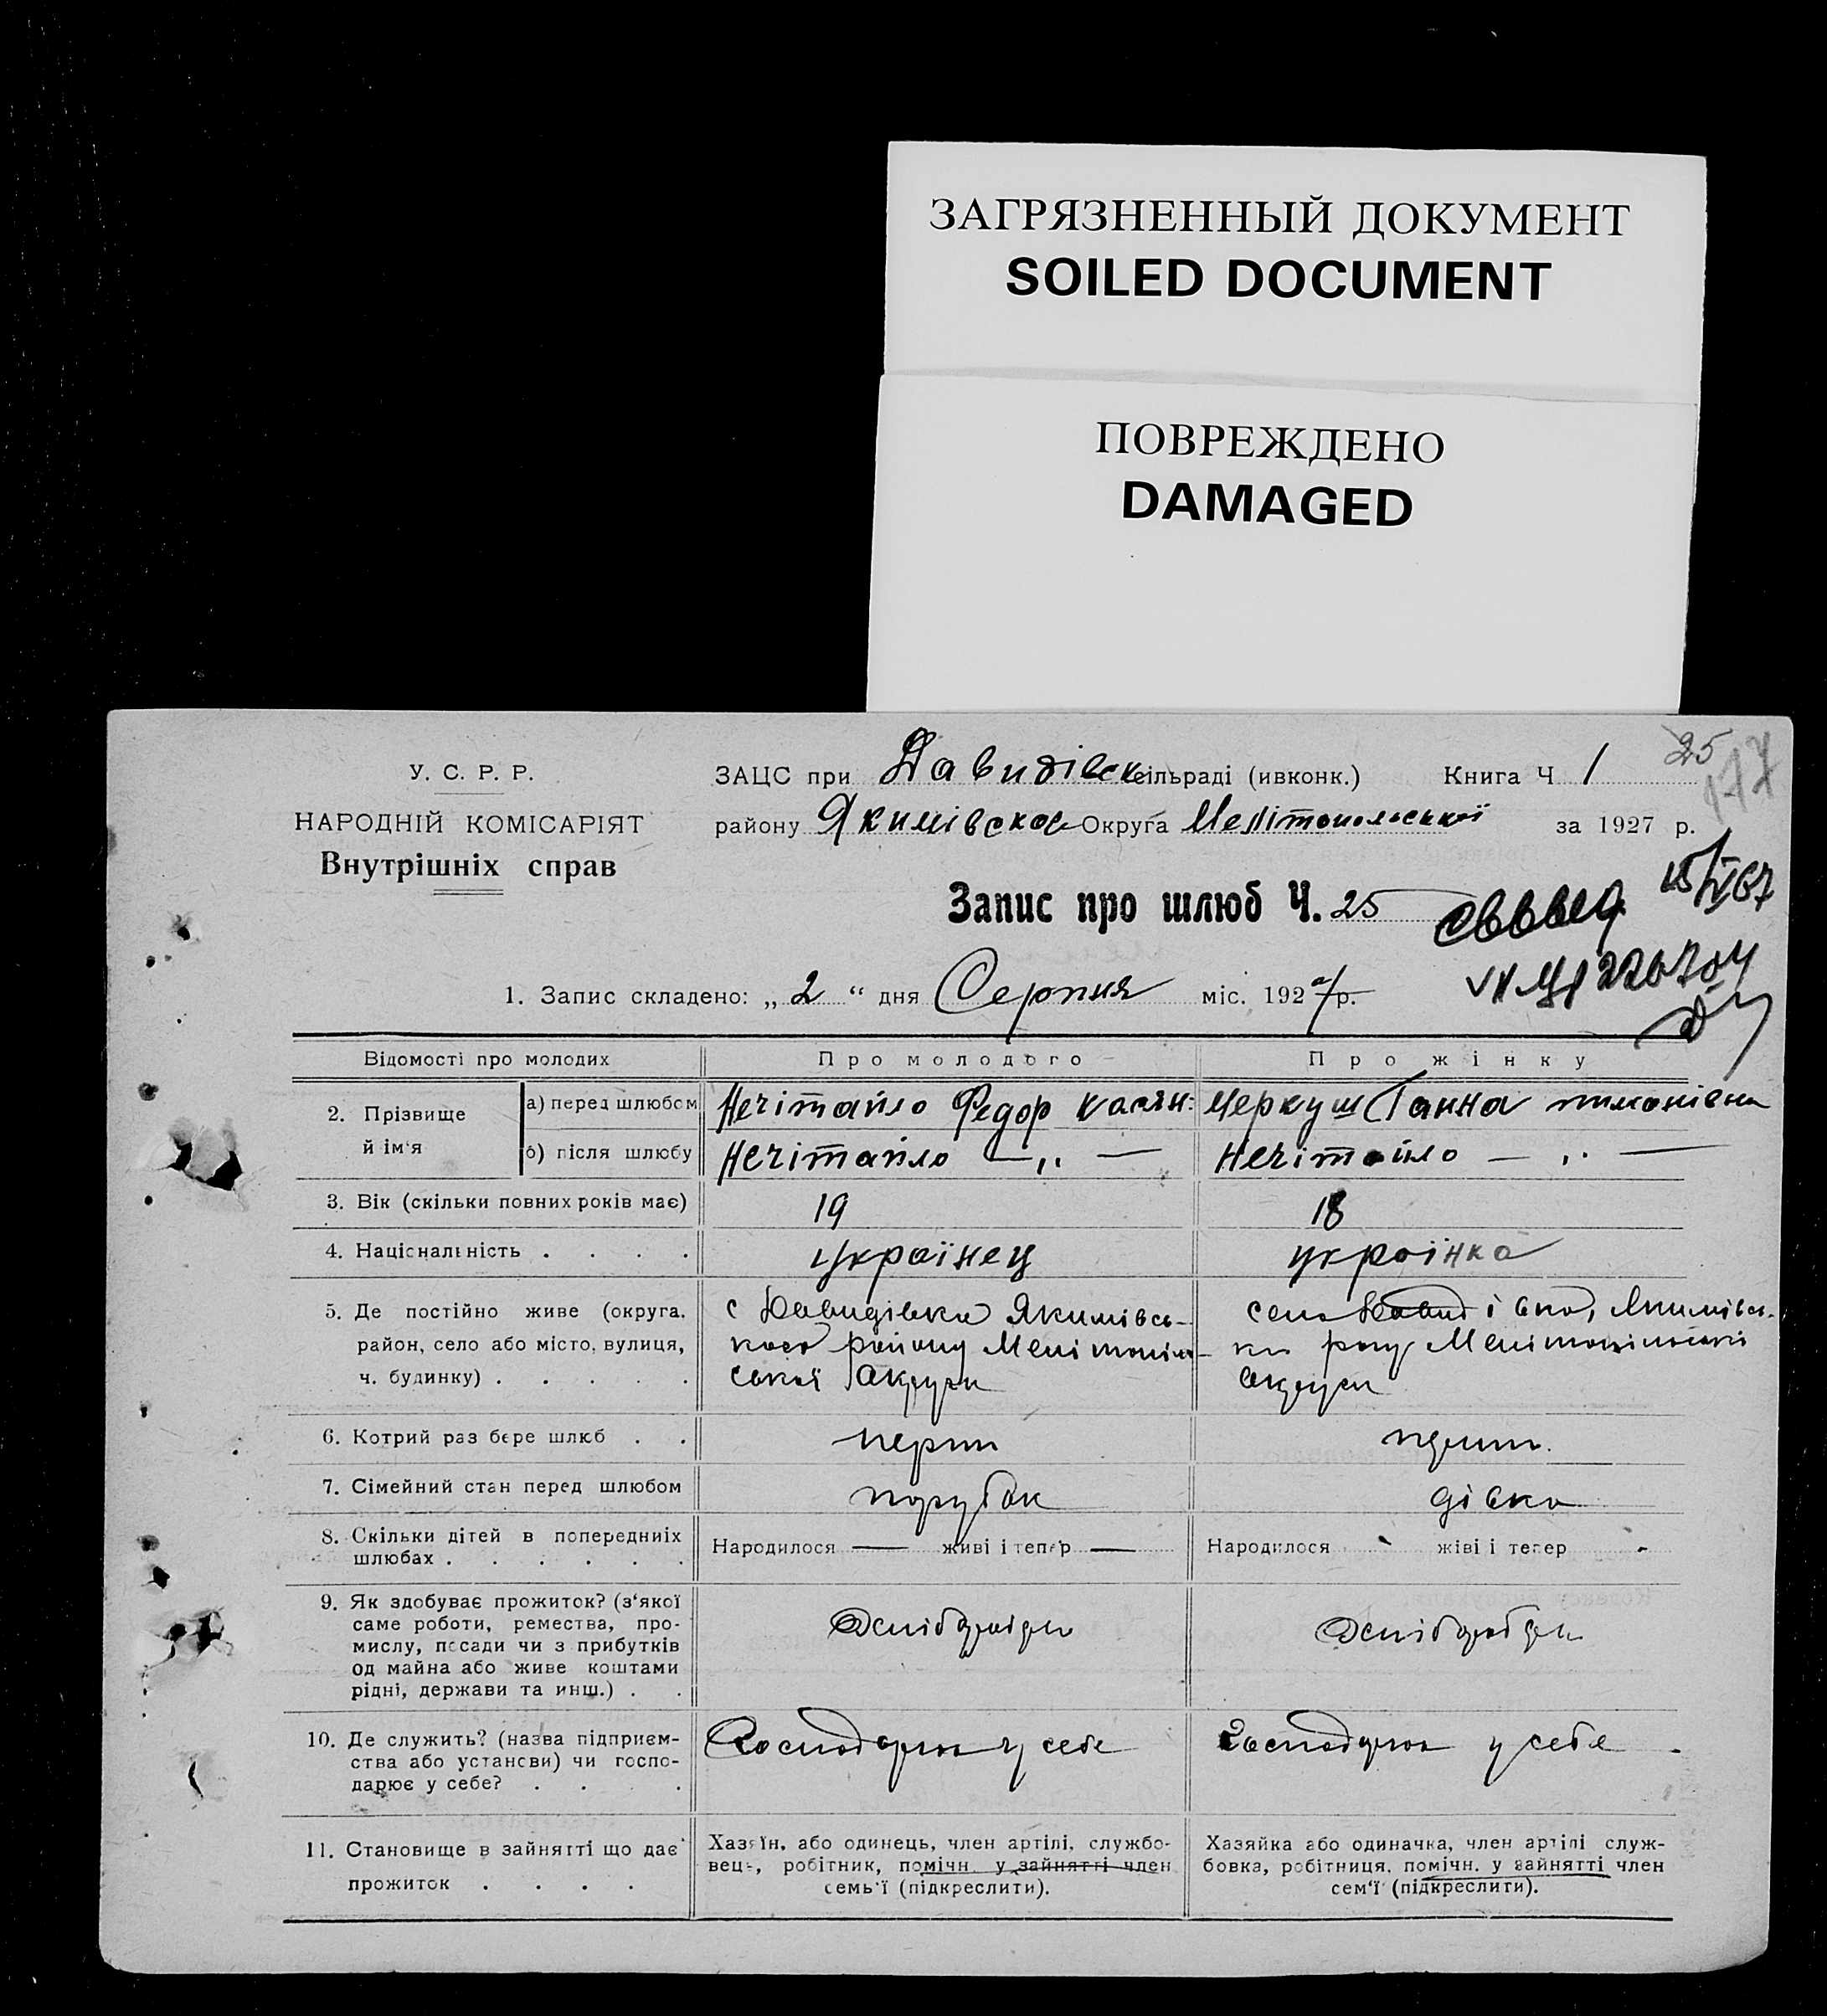 ЗАГРЯЗНЕННЫЙ ДОКУМЕНТ
SOILED DOCUMENT
ПОВРЕЖДЕНО
DAMAGED
У. С. Р. Р.
НАРОДНІЙ КОМІСАРІЯТ
Внутрішніх справ
ЗАЦС при Давидівск сільраді (ивконк.) Книга Ч 1
25
177
району Якимівског Округа Мелітопольської за 1927 р.
Запис про шлюб Ч. 25
1. Запис складено: „ 2 “ дня Серпня міс. 1927 р.
Відомості про молодих Про молодого Про жінку
2. Прізвище й ім'я
а) перед шлюбом Нечітайло Федор Касян. Черкуш Ганна тимонівна
б) після шлюбу Нечітайло — „ — Нечітайло — „ —
3. Вік (скільки повних років має) 19 18
4. Національність . . . . українец українка
5. Де постійно живе (округа, с Давидівка Якимівсь- село Давидівка, Якимівсь-
район, село або місто, вулиця, кого району Мелітопіль- ки рогу Мелітопільскої
ч. будинку) . . . . . ської Округи округи
6. Котрий раз бере шлюб . . перш перш.
7. Сімейний стан перед шлюбом парубок дівка
8. Скільки дітей в попередниіх
шлюбах . . . . . . Народилося — живі і тепер — Народилося - жіві і тепер -
9. Як здобуває прожиток? (з'якої
саме роботи, ремества, про-
мислу, посади чи з прибутків
од майна або живе коштами
рідні, держави та инш.) . .
Хліборобством Хліборобством
10. Де служить? (назва підприєм-
ства або установи) чи госпо-
дарює у себе? . . . .
Господарює у себе Господарює у себе
11. Становище в зайнятті що дає
прожиток . . . .
Хазяїн, або одинець, член артілі, службо-
вець, робітник, помічн. у зайнятті член
семь'ї (підкреслити).
Хазяйка або одиначка, член артілі служ-
бовка, робітниця, помічн. у зайнятті член
сем'ї (підкреслити).